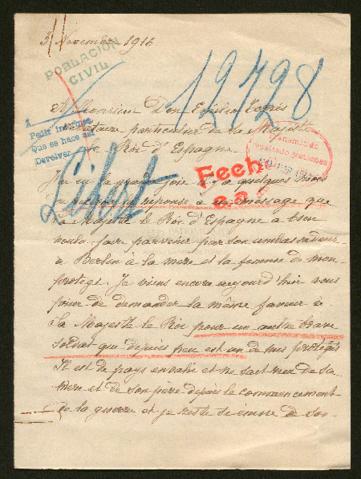 3 Novembre 1916
POBLACIÓN
CIVIL
12728
A Monsieur Don Emilio Torrés
Secrétaire particulier de Sa Majesté
le Roi d'Espagne
Pedir informes
Que se hace así
Devolver
Feche
J'ai eu la grande joie il y a quelques mois
réponse à un message que
Sa Majesté le Roi d'Espagne a bien
voulu faire parvenir par son ambassadeur
à Berlin à la mère et la femme de mon
protégé. Je viens encore aujourd'hui vous
prier de demander la même faveur à
Sa Majesté le Roi pour un autre brave
soldat qui depuis peu est un de mes protégés
Il est de pays envahi et ne sait rien de sa
mère et de son père depuis le commencement
de la guerre et je de